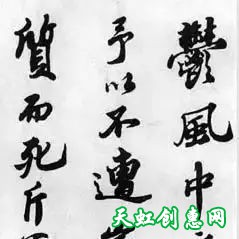 鬱風中
予以不遭
質而死斤
天虹创惠网